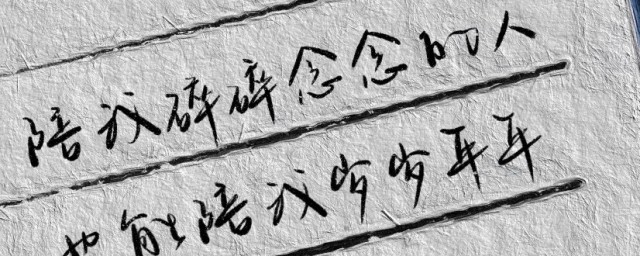 陪我碎碎念念的人
也能陪我岁岁年年